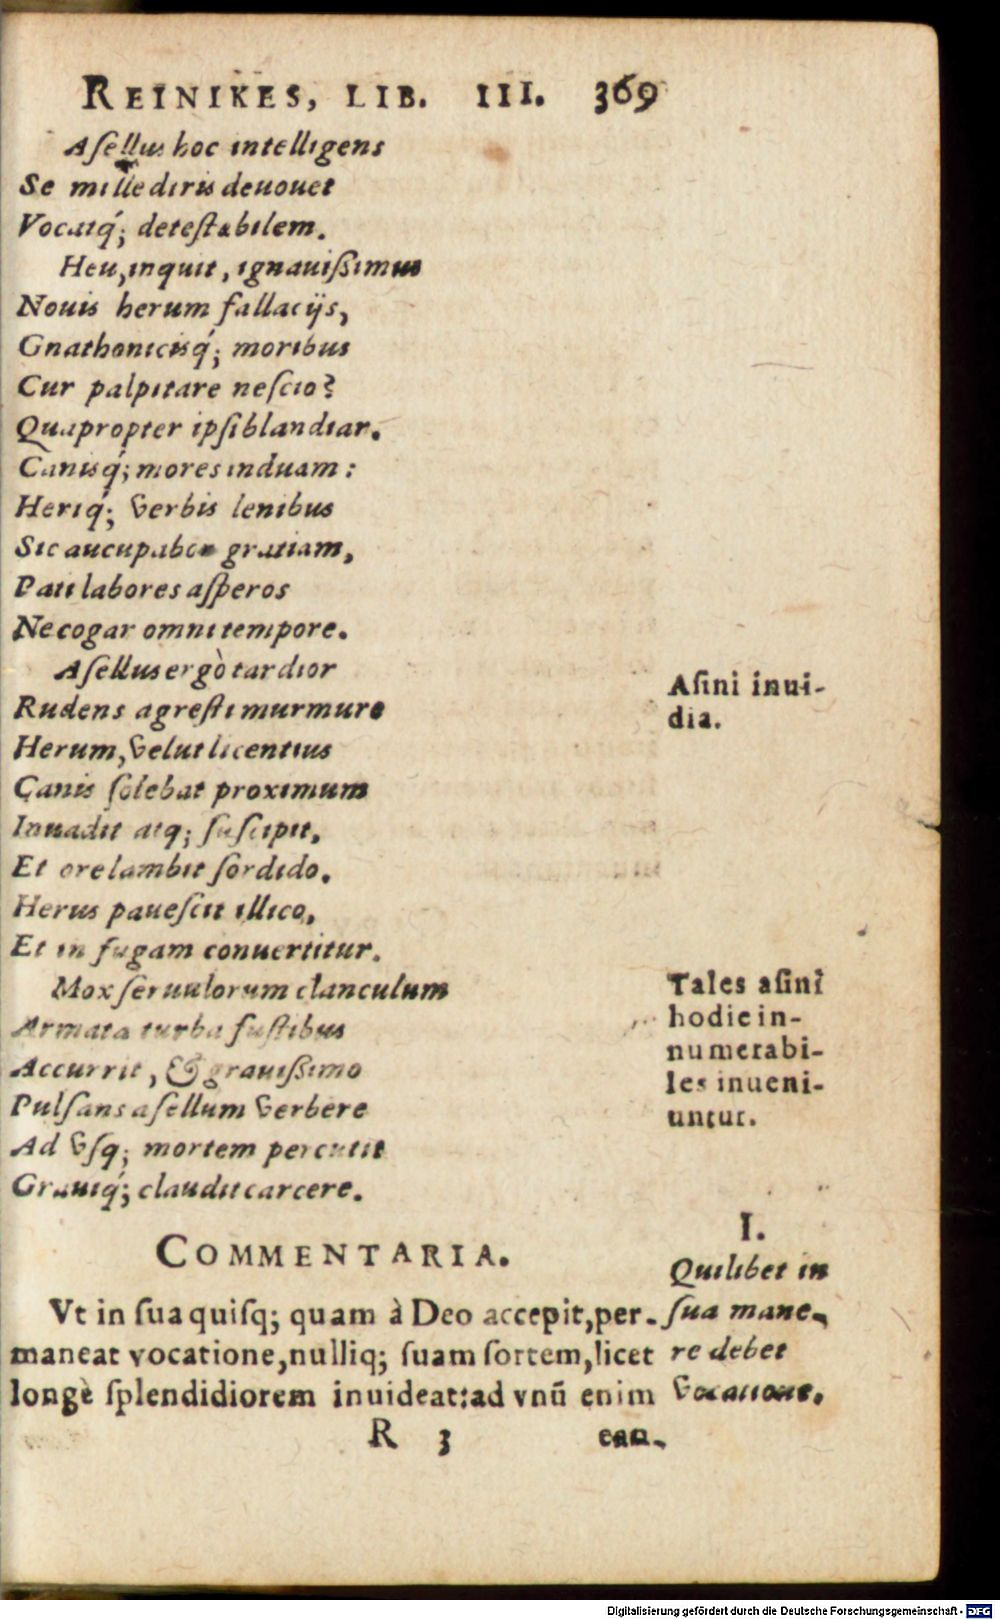 REINIKES, LIB. III. 369
Aſellus hoc intelligens
Se mille diris deuouet
Vocatq́; deteſtabilem.
Heu, inquit, ignauiſsimus
Nouis herum fallacijs,
Gnathonicisq́; moribus
Cur palpitare neſcio?
Quapropter ipſi blandiar.
Canisq́; mores induam:
Heriq́; verbis lenibus
Sic aucupabor gratiam,
Pati labores aſperos
Ne cogar omni tempore.
Aſellus ergò tardior
Rudens agreſti murmure
Herum, velut licentius
Canis ſolebat proximum
Inuadit atq; ſuſcipit,
Et ore lambit ſordido.
Herus paueſcit illico,
Et in fugam conuertitur.
Mox ſeruulorum clanculum
Armata turba fuſtibus
Accurrit, & grauiſsimo
Pulſans aſellum verbere
Ad vſq; mortem percutit
Grauiq́; claudit carcere.
Aſini inui-
dia.
Tales aſini
hodie in-
numerabi-
les inueni-
untur.
COMMENTARIA.
Vt in ſua quiſq; quam à Deo accepit, per-
maneat vocatione, nulliq; ſuam ſortem, licet
longè ſplendidiorem inuideat: ad vnū enim
I.
Quilibet in
ſua mane-
re debet
vocatione.
R 3 ean-
Digitalisierung gefördert durch die Deutsche Forschungsgemeinschaft - DFG